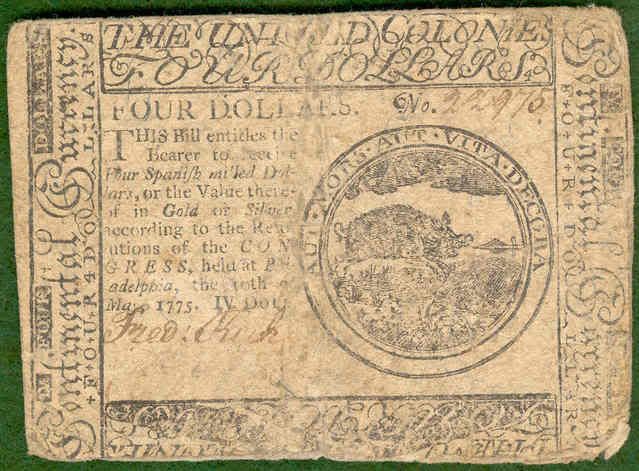 THE UNITED COLONIES
FOUR DOLLARS
FOUR DOLLARS. No. 22915
THIS Bill entitles the
Bearer to receive
Four Spanish milled Dol-
lars, or the Value there-
of in Gold or Silver
according to the Reso-
lutions of the CON-
GRESS, held at Phi-
ladelphia, the 10th of
May, 1775. IV DOLL
AUT MORS AUT VITA DECORA
Continental Currency
FOUR DOLLARS
Continental Currency
FOUR DOLLARS